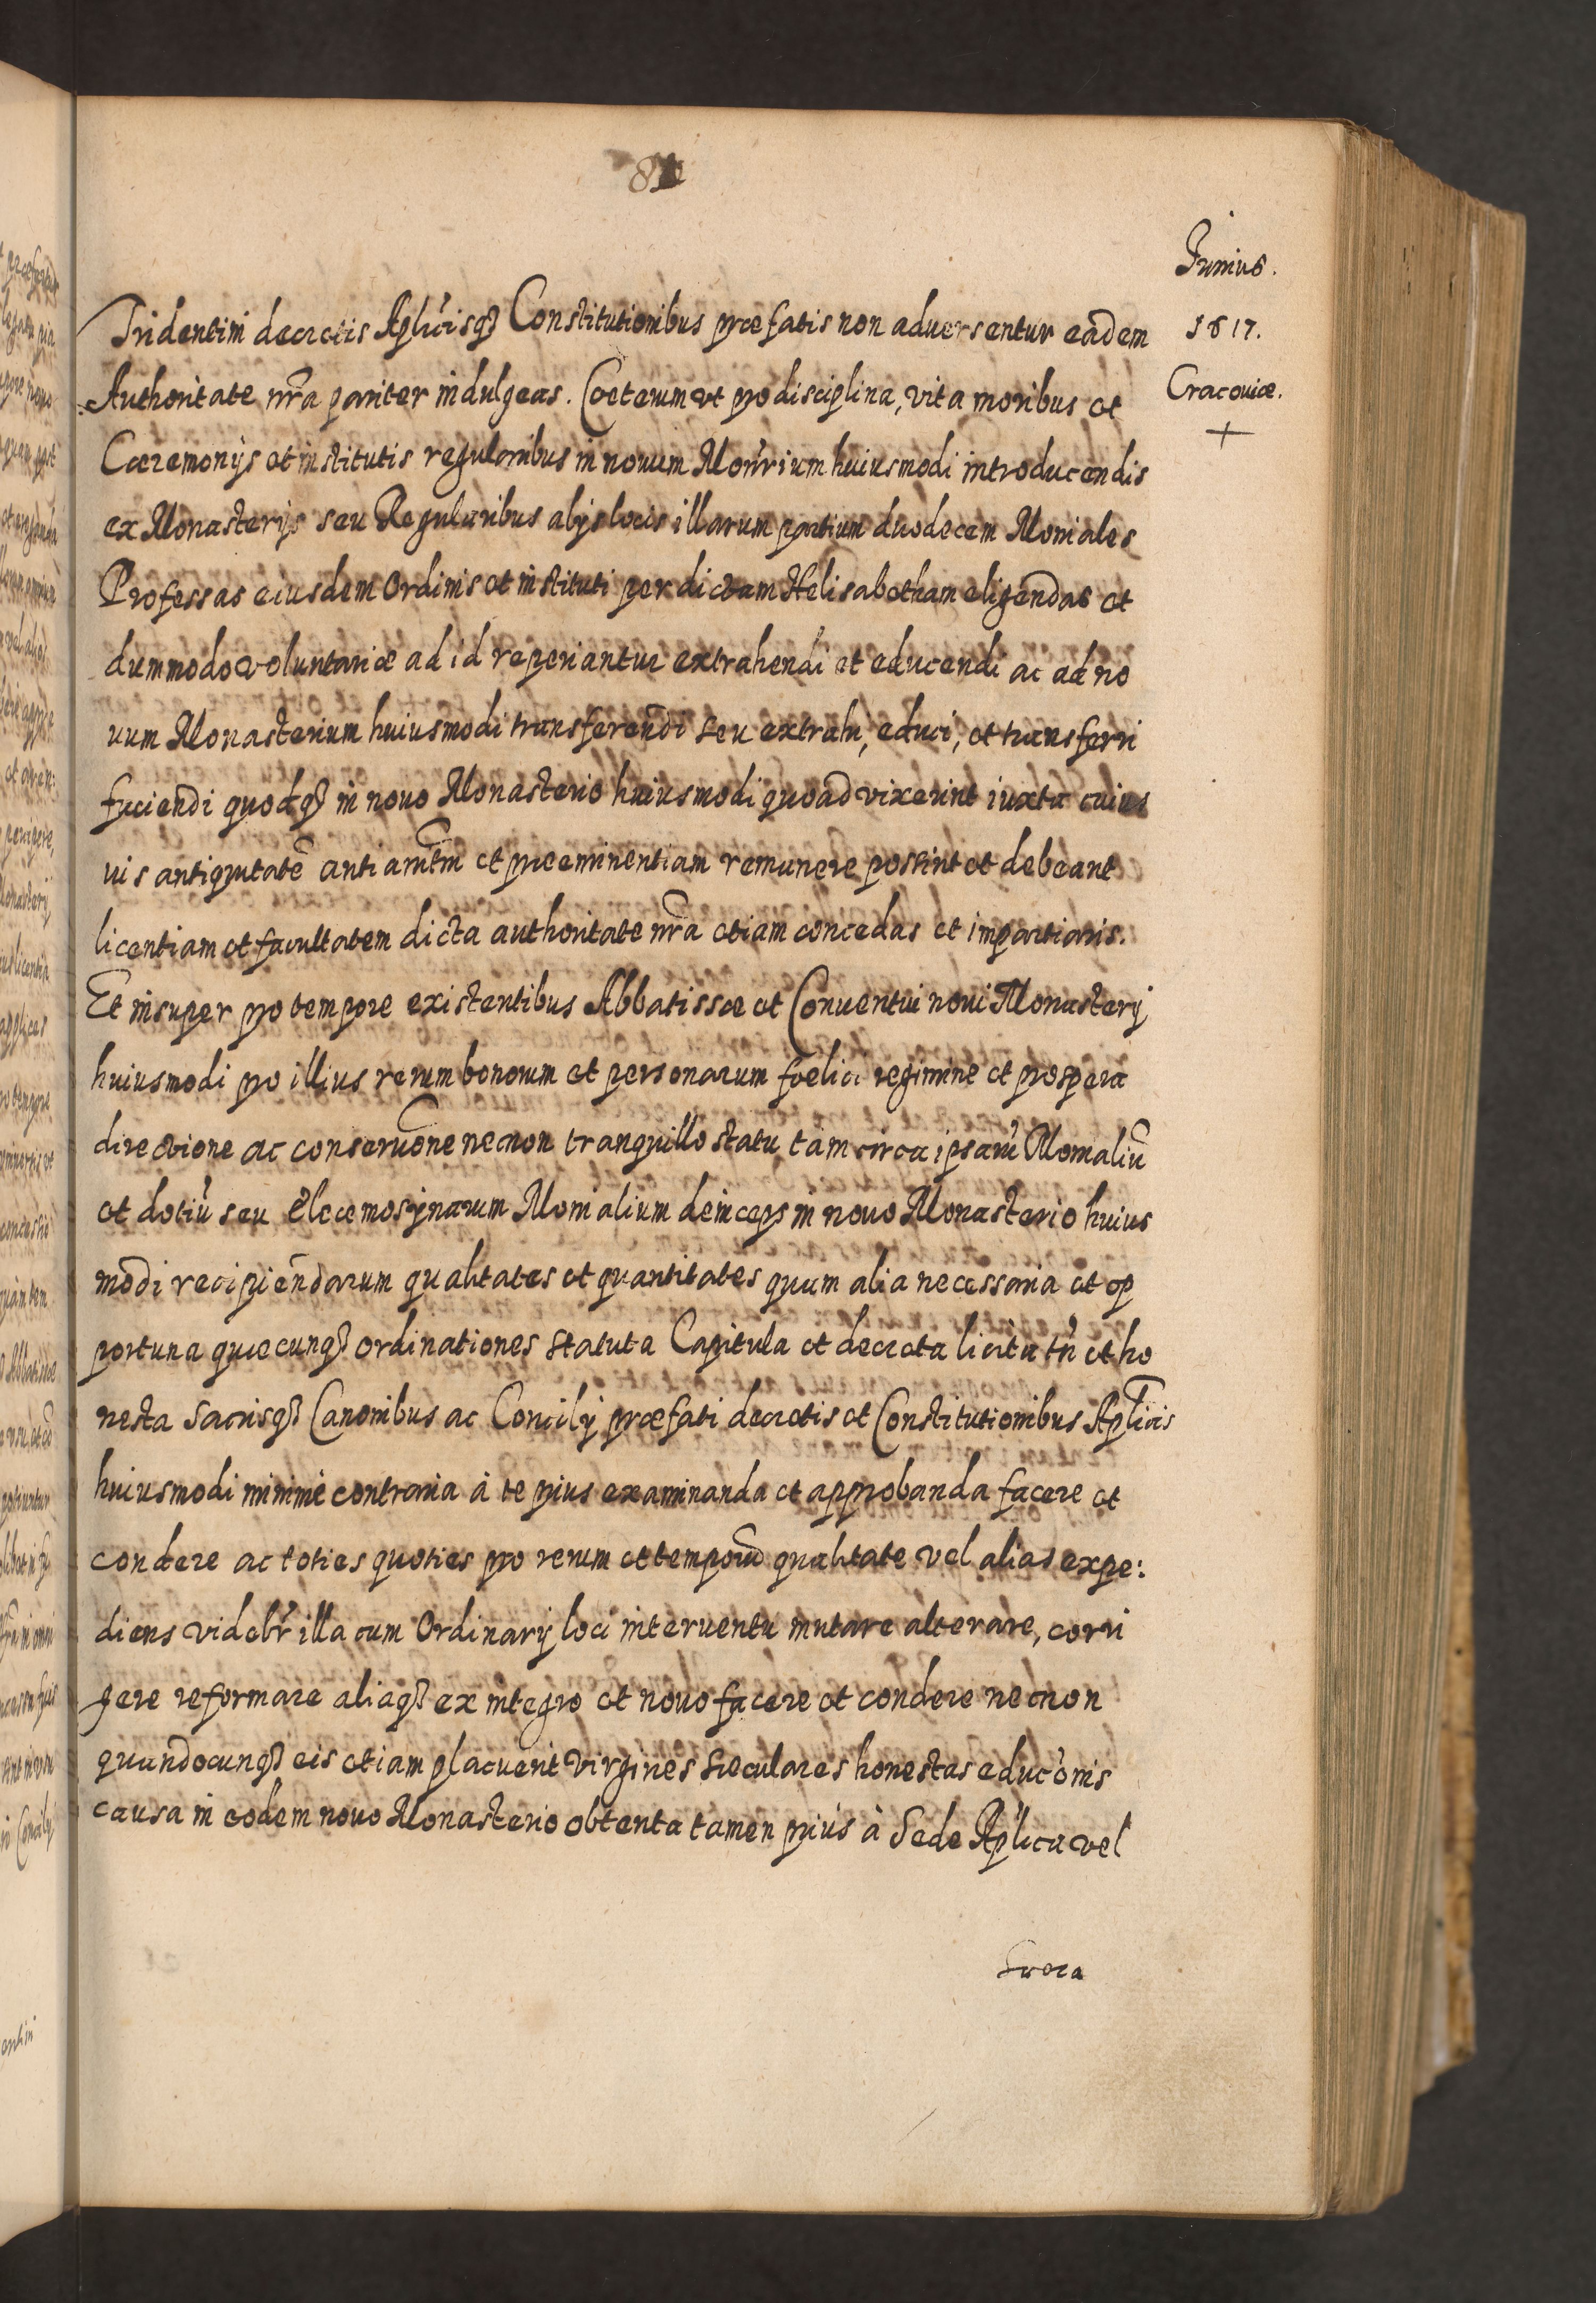 Junius.
1617.
Cracouiæ.
Tridentini decretis Aplicisq3 Constitutionibus præfatis non aduersentur eadem
Authoritate nra pariter indulgeas. Cœterum vt pro disciplina, vita moribus et
Cæremonijs et institutis regularibus in nouum Monrium huiusmodi introducendis
ex Monasterijs seu Regularibus alijs locis illarum partium duodecem Moniales
Professas eiusdem Ordinis et instituti per dictam Helisabetham eligendas et
dummodo voluntariæ ad id reperiantur extrahendi et educendi ac ad no
uum Monasterium huiusmodi transferendi seu extrahi, educi, et transferri
faciendi quodq3 in nouo Monasterio huiusmodi quoad vixerint iuxta cuius
uis antiquitatē et præeminentiam remanere possint et debeant
licentiam et facultatem dicta authoritate nra etiam concedas et impartiaris.
Et insuper pro tempore existentibus Abbatissæ et Conuentui noui Monasterij
huiusmodi pro illius rerum bonorum et personarum fœlici regimine et prospera
directione ac conseruone necnon tranquillo statu tam circa ipsarū Monialiū
et dotiū seu Eleemosÿnarum Monialium deinceps in nouo Monasterio huius
modi recipiendarum qualitates et quantitates quam alia necessaria et op
portuna quæcunq3 ordinationes statuta Capitula et decreta licita tn et ho
nesta sacrisq3 Canonibus ac Concilij præfati decretis et Constitutionibus Aplicis
huiusmodi minimè contraria à te prius examinanda et approbanda facere et
condere ac toties quoties pro rerum et temporū qualitate vel alias expe:
diens videbr illa cum Ordinarij loci interuentu mutare alterare, corri
gere reformare aliaq3 ex integro et nouo facere et condere necnon
quandocunq3 eis etiam placuerit Virgines sæculares honestas educonis
causa in eodem nouo Monasterio obtenta tamen prius à Sede Aplica vel